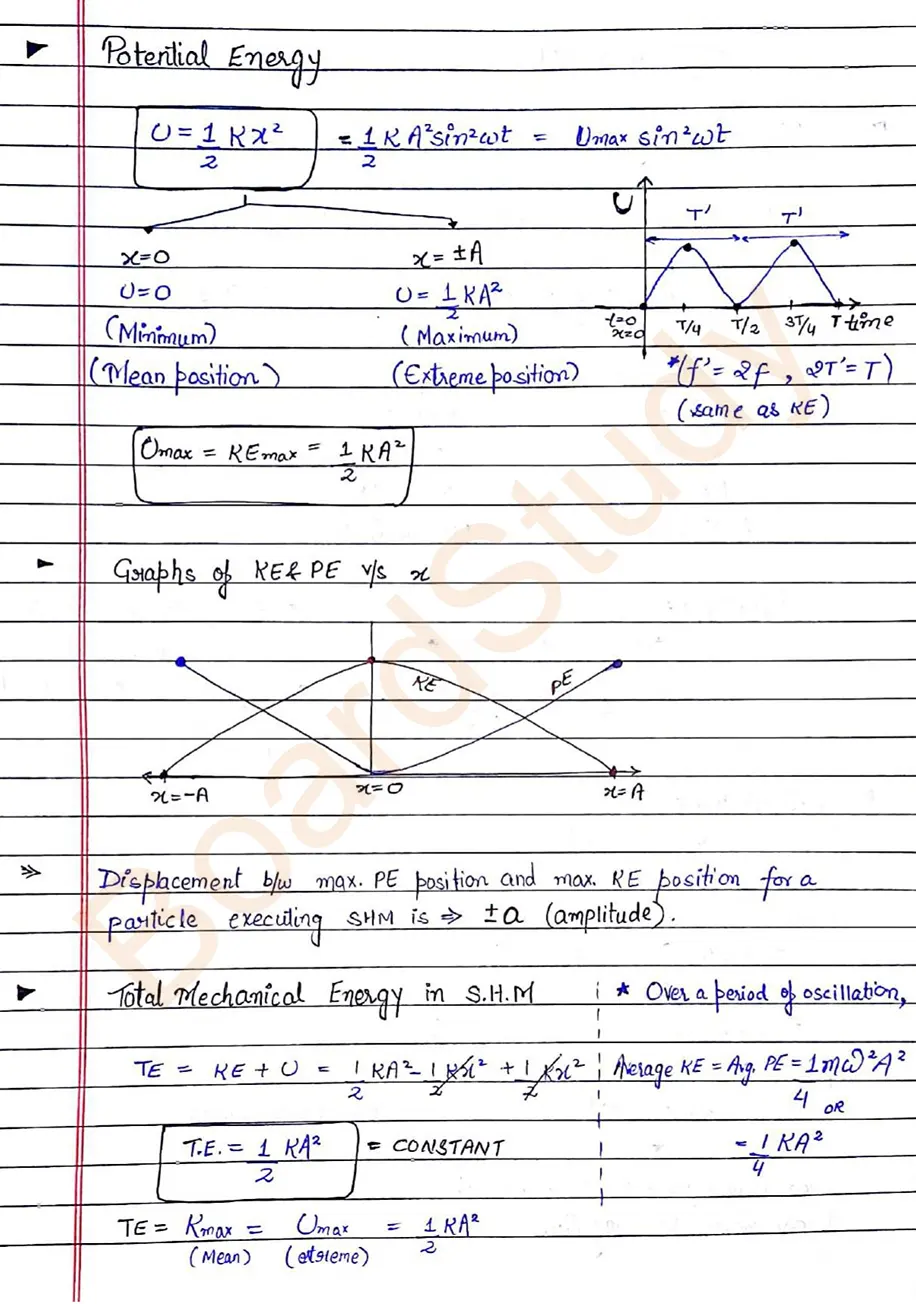 Potential Energy
U = 1/2 Kx² = 1/2 KA²sin²ωt = Umax sin²ωt
x=0 x= ±A
U=0 U= 1/2 KA²
(Minimum) (Maximum)
(Mean position) (Extreme position)
U
T' T'
t=0 T/4 T/2 3T/4 T time
x=0
*(f'= 2f , 2T'= T)
(same as KE)
Umax = KEmax = 1/2 KA²
Graphs of KE & PE v/s x
KE PE
x=-A x=0 x=A
Displacement b/w max. PE position and max. KE position for a
particle executing SHM is ⇒ ±a (amplitude).
Total Mechanical Energy in S.H.M
TE = KE + U = 1/2 KA² - 1/2 Kx² + 1/2 Kx²
T.E. = 1/2 KA² = CONSTANT
TE = Kmax = Umax = 1/2 KA²
(Mean) (extreme)
* Over a period of oscillation,
Average KE = Avg. PE = 1/4 mω²A²
OR
= 1/4 KA²
BoardStudy